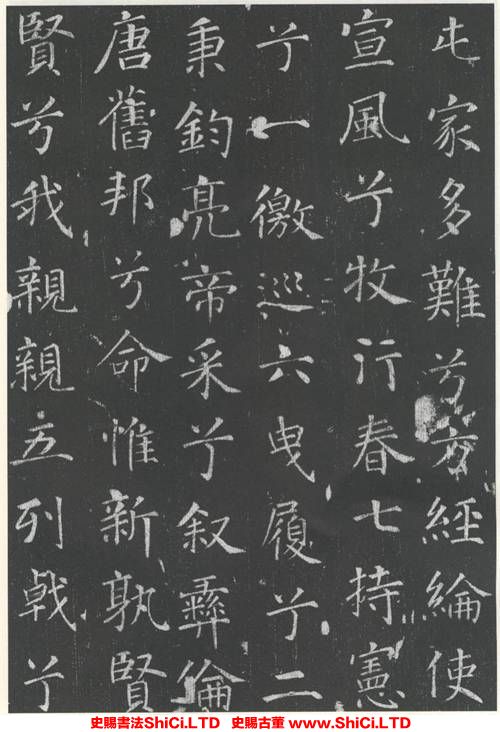 屯家多難兮方經綸使
宣風兮牧行春七持憲
兮一徼巡六曳履兮二
秉鈞亮帝采兮叙彝倫
唐舊邦兮命惟新孰賢
賢兮我親親五列戟兮
史賜書法ShiCi.LTD 史賜古董 www.ShiCi.LTD